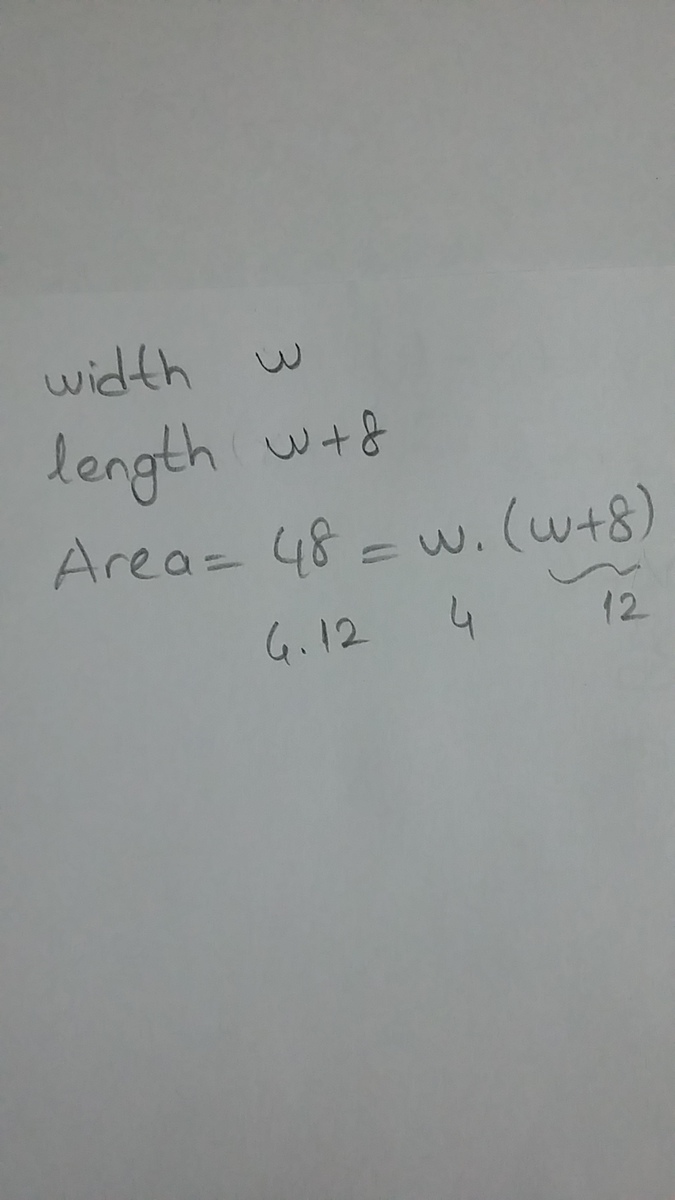 width w
length w+8
Area= 48 = w. (w+8)
4.12 4 12